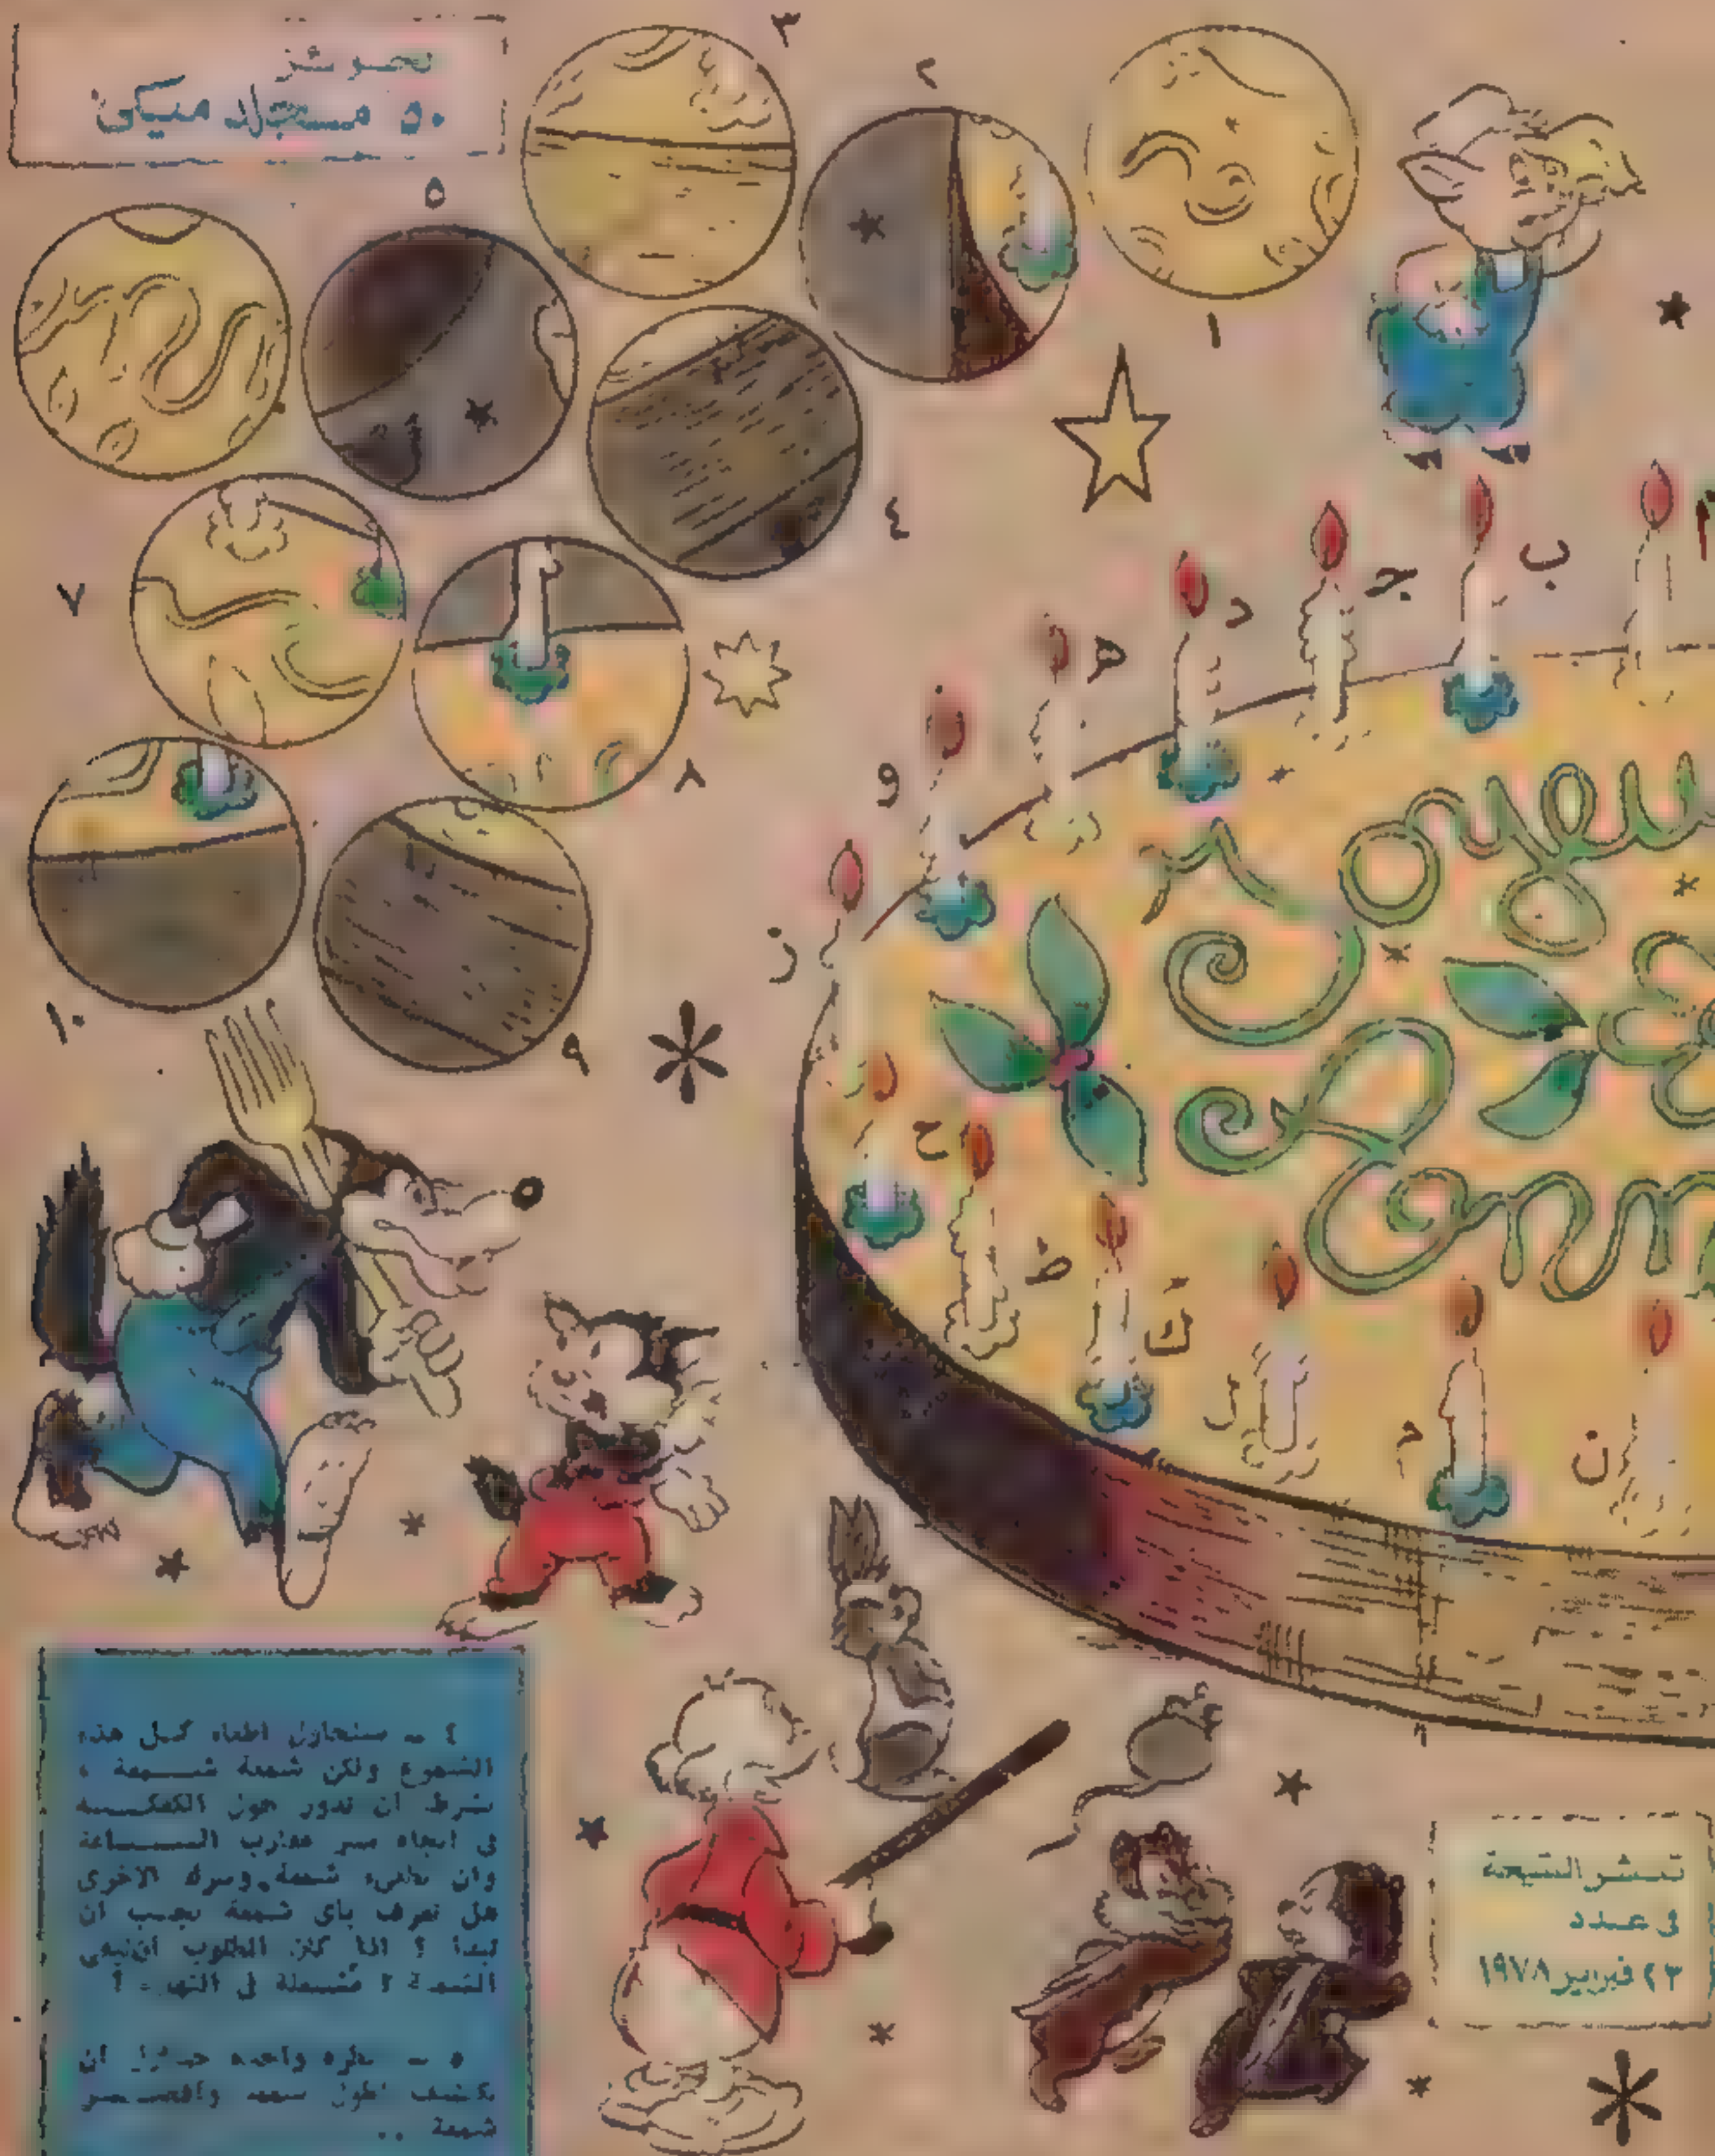 ٥٠ مجلد ميكى
٣
٢
١
٥
٤
٧
٨
١٠
٩
ب
جـ
د
هـ
و
ز
ح
ط
ك
ل
م
ن
٤ ـ ستحاول اطفاء كل هذه
الشموع ولكن شمعة شمعة ،
بشرط أن تدور حول الكعكة
فى اتجاه سير عقارب الساعة
وان تطفىء شمعة وتترك الاخرى
هل تعرف بأى شمعة يجب أن
تبدأ ؟ اذا كان المطلوب أن تبقى
الشمعة مشتعلة فى النهاية ؟
٥ ـ نظرة واحدة حاول ان
تكتشف أطول شمعة وأقصر
شمعة ..
تنشر النتيجة
فى عدد
٢٣ فبراير ١٩٧٨